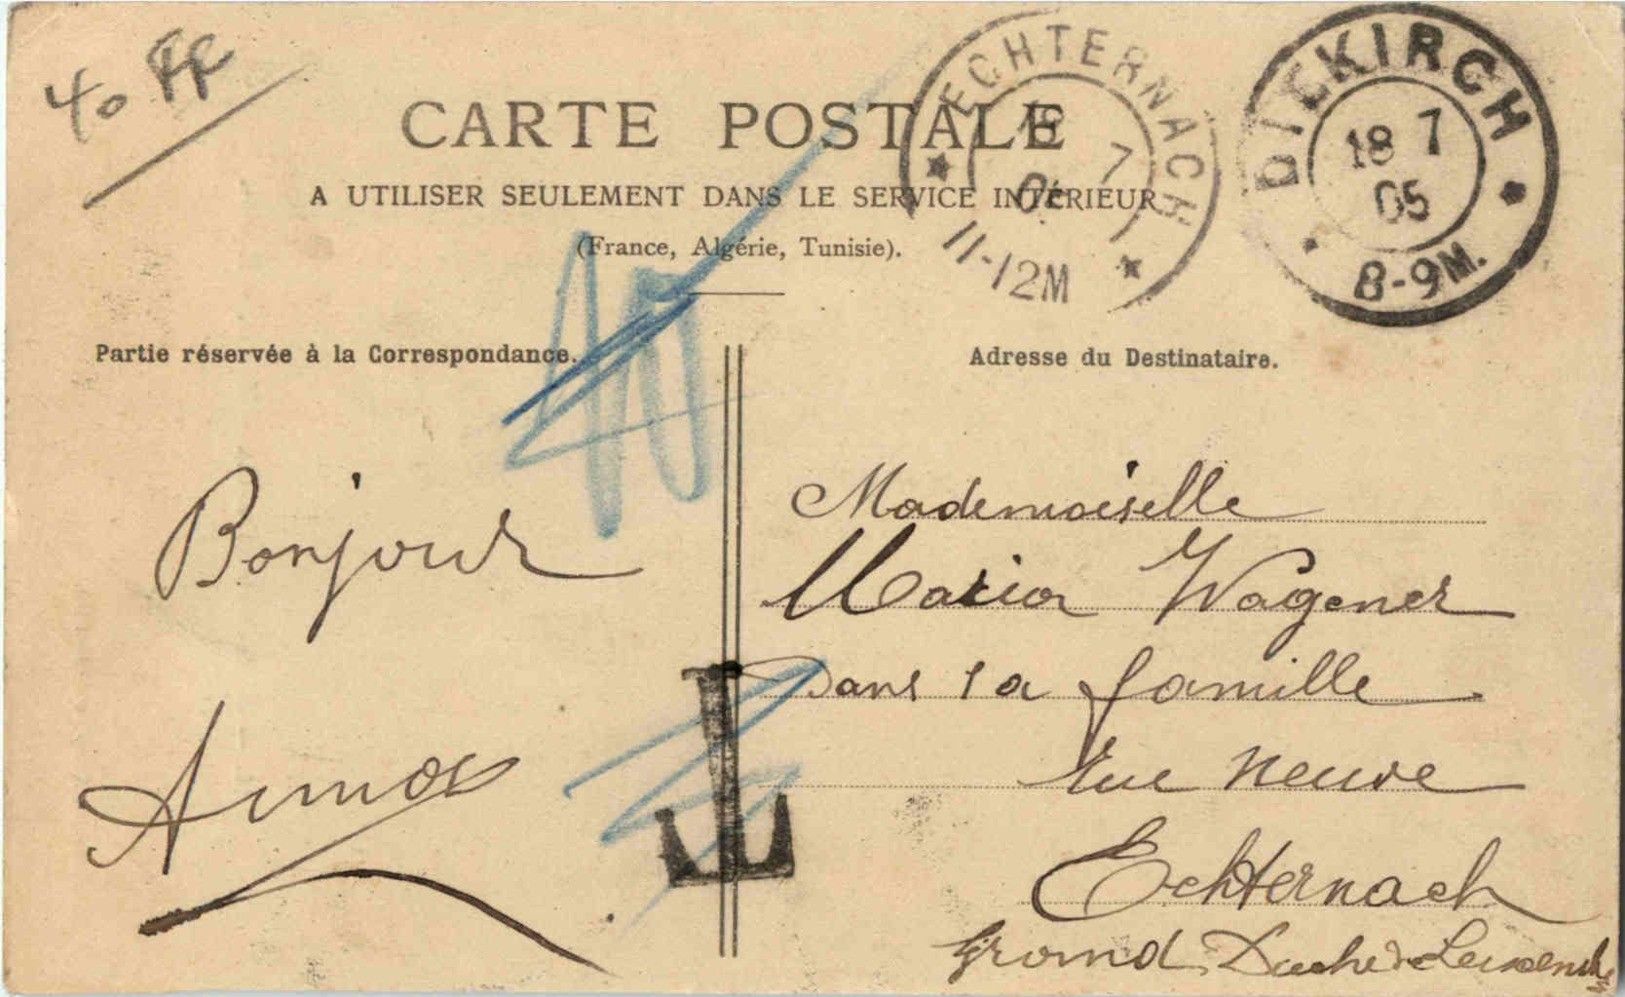 40 FF
CARTE POSTALE
A UTILISER SEULEMENT DANS LE SERVICE INTÉRIEUR
(France, Algérie, Tunisie).
ECHTERNACH
18 7
11-12M
DIEKIRCH
18 7
05
8-9M.
Partie réservée à la Correspondance.
Adresse du Destinataire.
10
Bonjour
T
Mademoiselle
Maria Wagener
Dans sa famille
Rue Neuve
Echternach
Grand Duché de